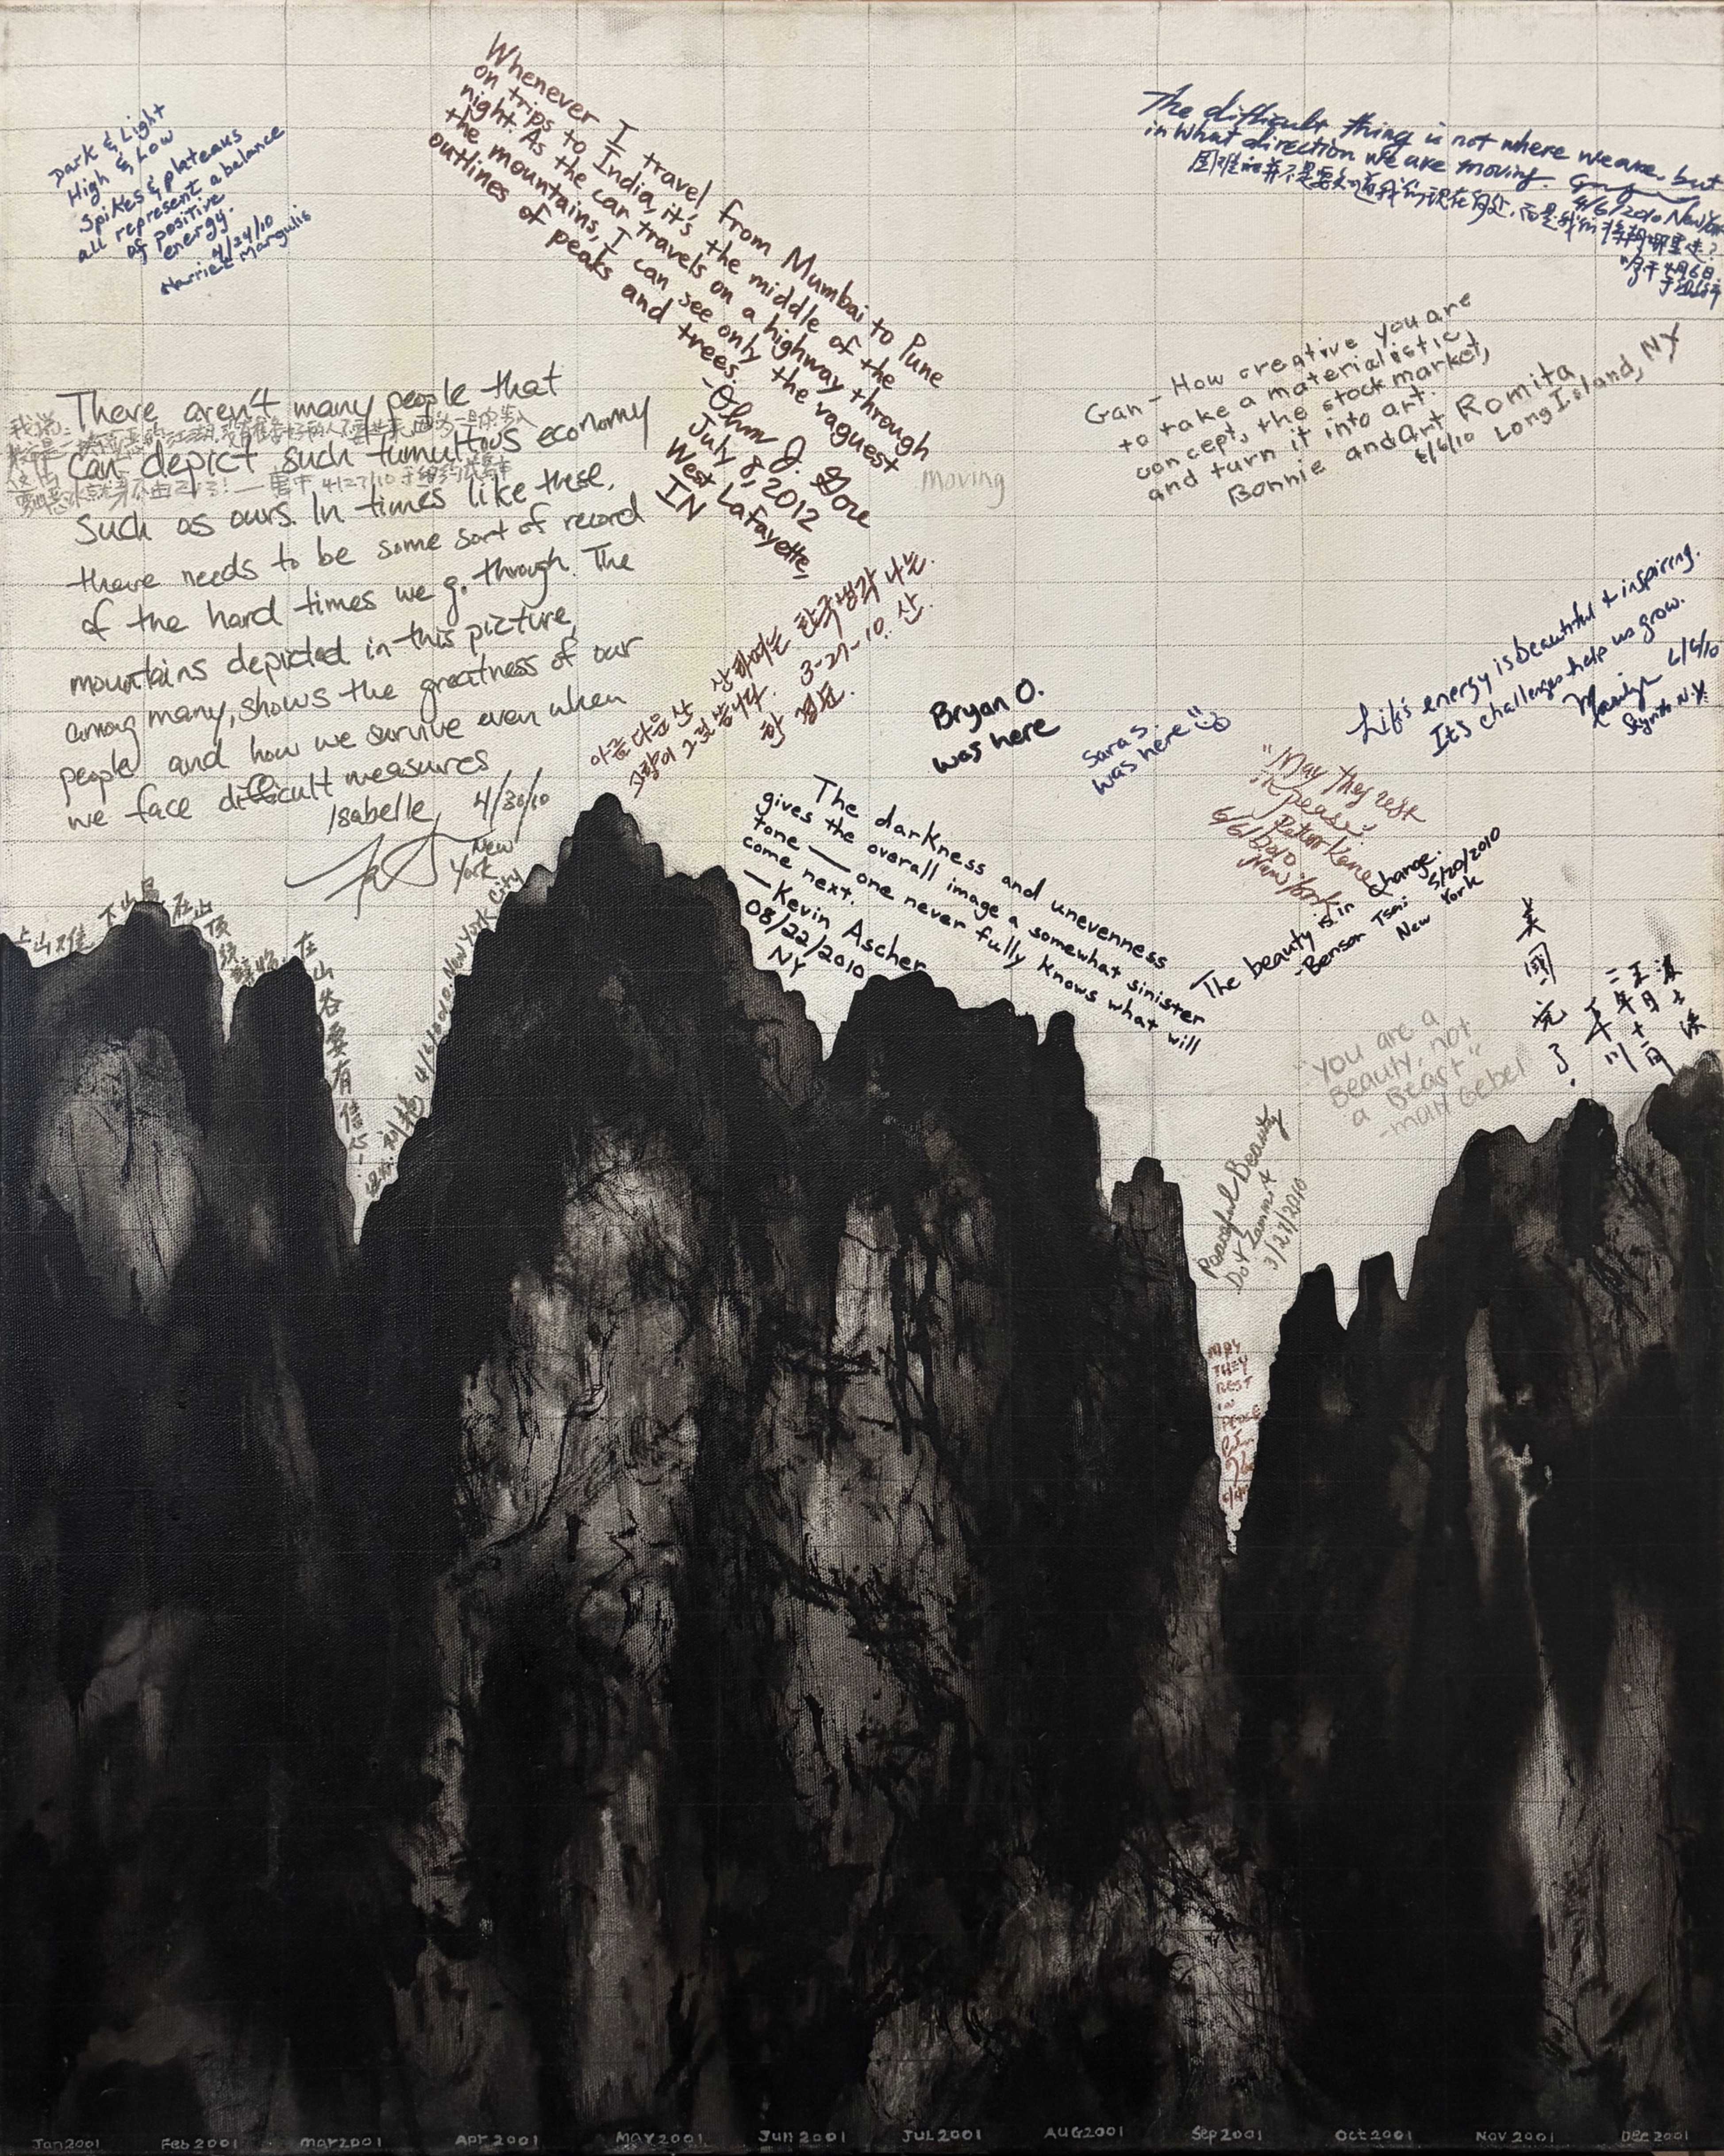 Dark & Light
High & Low
Spikes & plateaus
all represent a balance
of positive
energy.
4/24/10
Harriet Margulis
Whenever I travel from Mumbai to Pune
on trips to India, it's the middle of the
night. As the car travels on a highway through
the mountains, I can see only the vaguest
outlines of peaks and trees.
-Ohm J. Gore
July 8, 2012
West Lafayette,
IN
The difficult thing is not where we are, but
in what direction we are moving.
4/6/2010 New York
困难的并不是要知道我们现在何处,而是我们将朝哪里走?
4月6日
于纽约
Gan - How creative you are
to take a materialistic
concept, the stock market,
and turn it into art.
Bonnie and Art Romita
6/6/10 Long Island, NY
There aren't many people that
can depict such tumultous economy
such as ours. In times like these,
there needs to be some sort of record
of the hard times we go through. The
mountains depicted in this picture,
among many, shows the greatness of our
people and how we survive even when
we face difficult measures
Isabelle 4/30/10
New
York
我说:
4/27/10 于纽约
moving
아름다운 산 산하에는 한국생각 나는.
3-27-10. 산.
한
Bryan O.
was here
Sara S.
was here
Life's energy is beautiful & inspiring.
It's challenges help us grow.
Marilyn 6/6/10
N.Y.
"May they rest
in peace"
Peter Keine
6/6/2010
New York
The darkness and unevenness
gives the overall image a somewhat sinister
tone — one never fully knows what will
come next.
— Kevin Ascher
08/22/2010
NY
The beauty is in change.
-Benson Tsai 5/20/2010
New York
美國完了.
二千年
"You are a
Beauty, not
a Beast"
-Matt Gebel
Peaceful Beauty
Dot Zammit
3/27/2010
MAY
THEY
REST
IN
PEACE
上山难 下山易 在山顶
在山谷要有信心!
4/6/2010 New York City
Jan 2001 Feb 2001 Mar 2001 Apr 2001 May 2001 Jun 2001 Jul 2001 Aug 2001 Sep 2001 Oct 2001 Nov 2001 Dec 2001